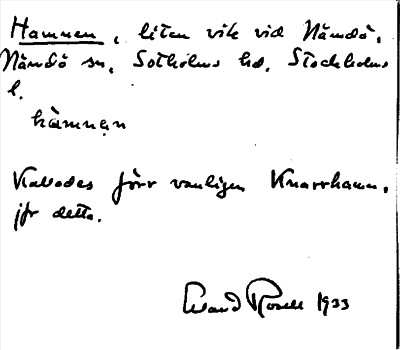 Hamnen, liten vik vid Nämdö,
Nämdö sn, Sotholms hd, Stockholms
l.
hàmnen
Kallades förr vanligen Knarrhamn,
jfr detta.
Ivar Rosell 1933